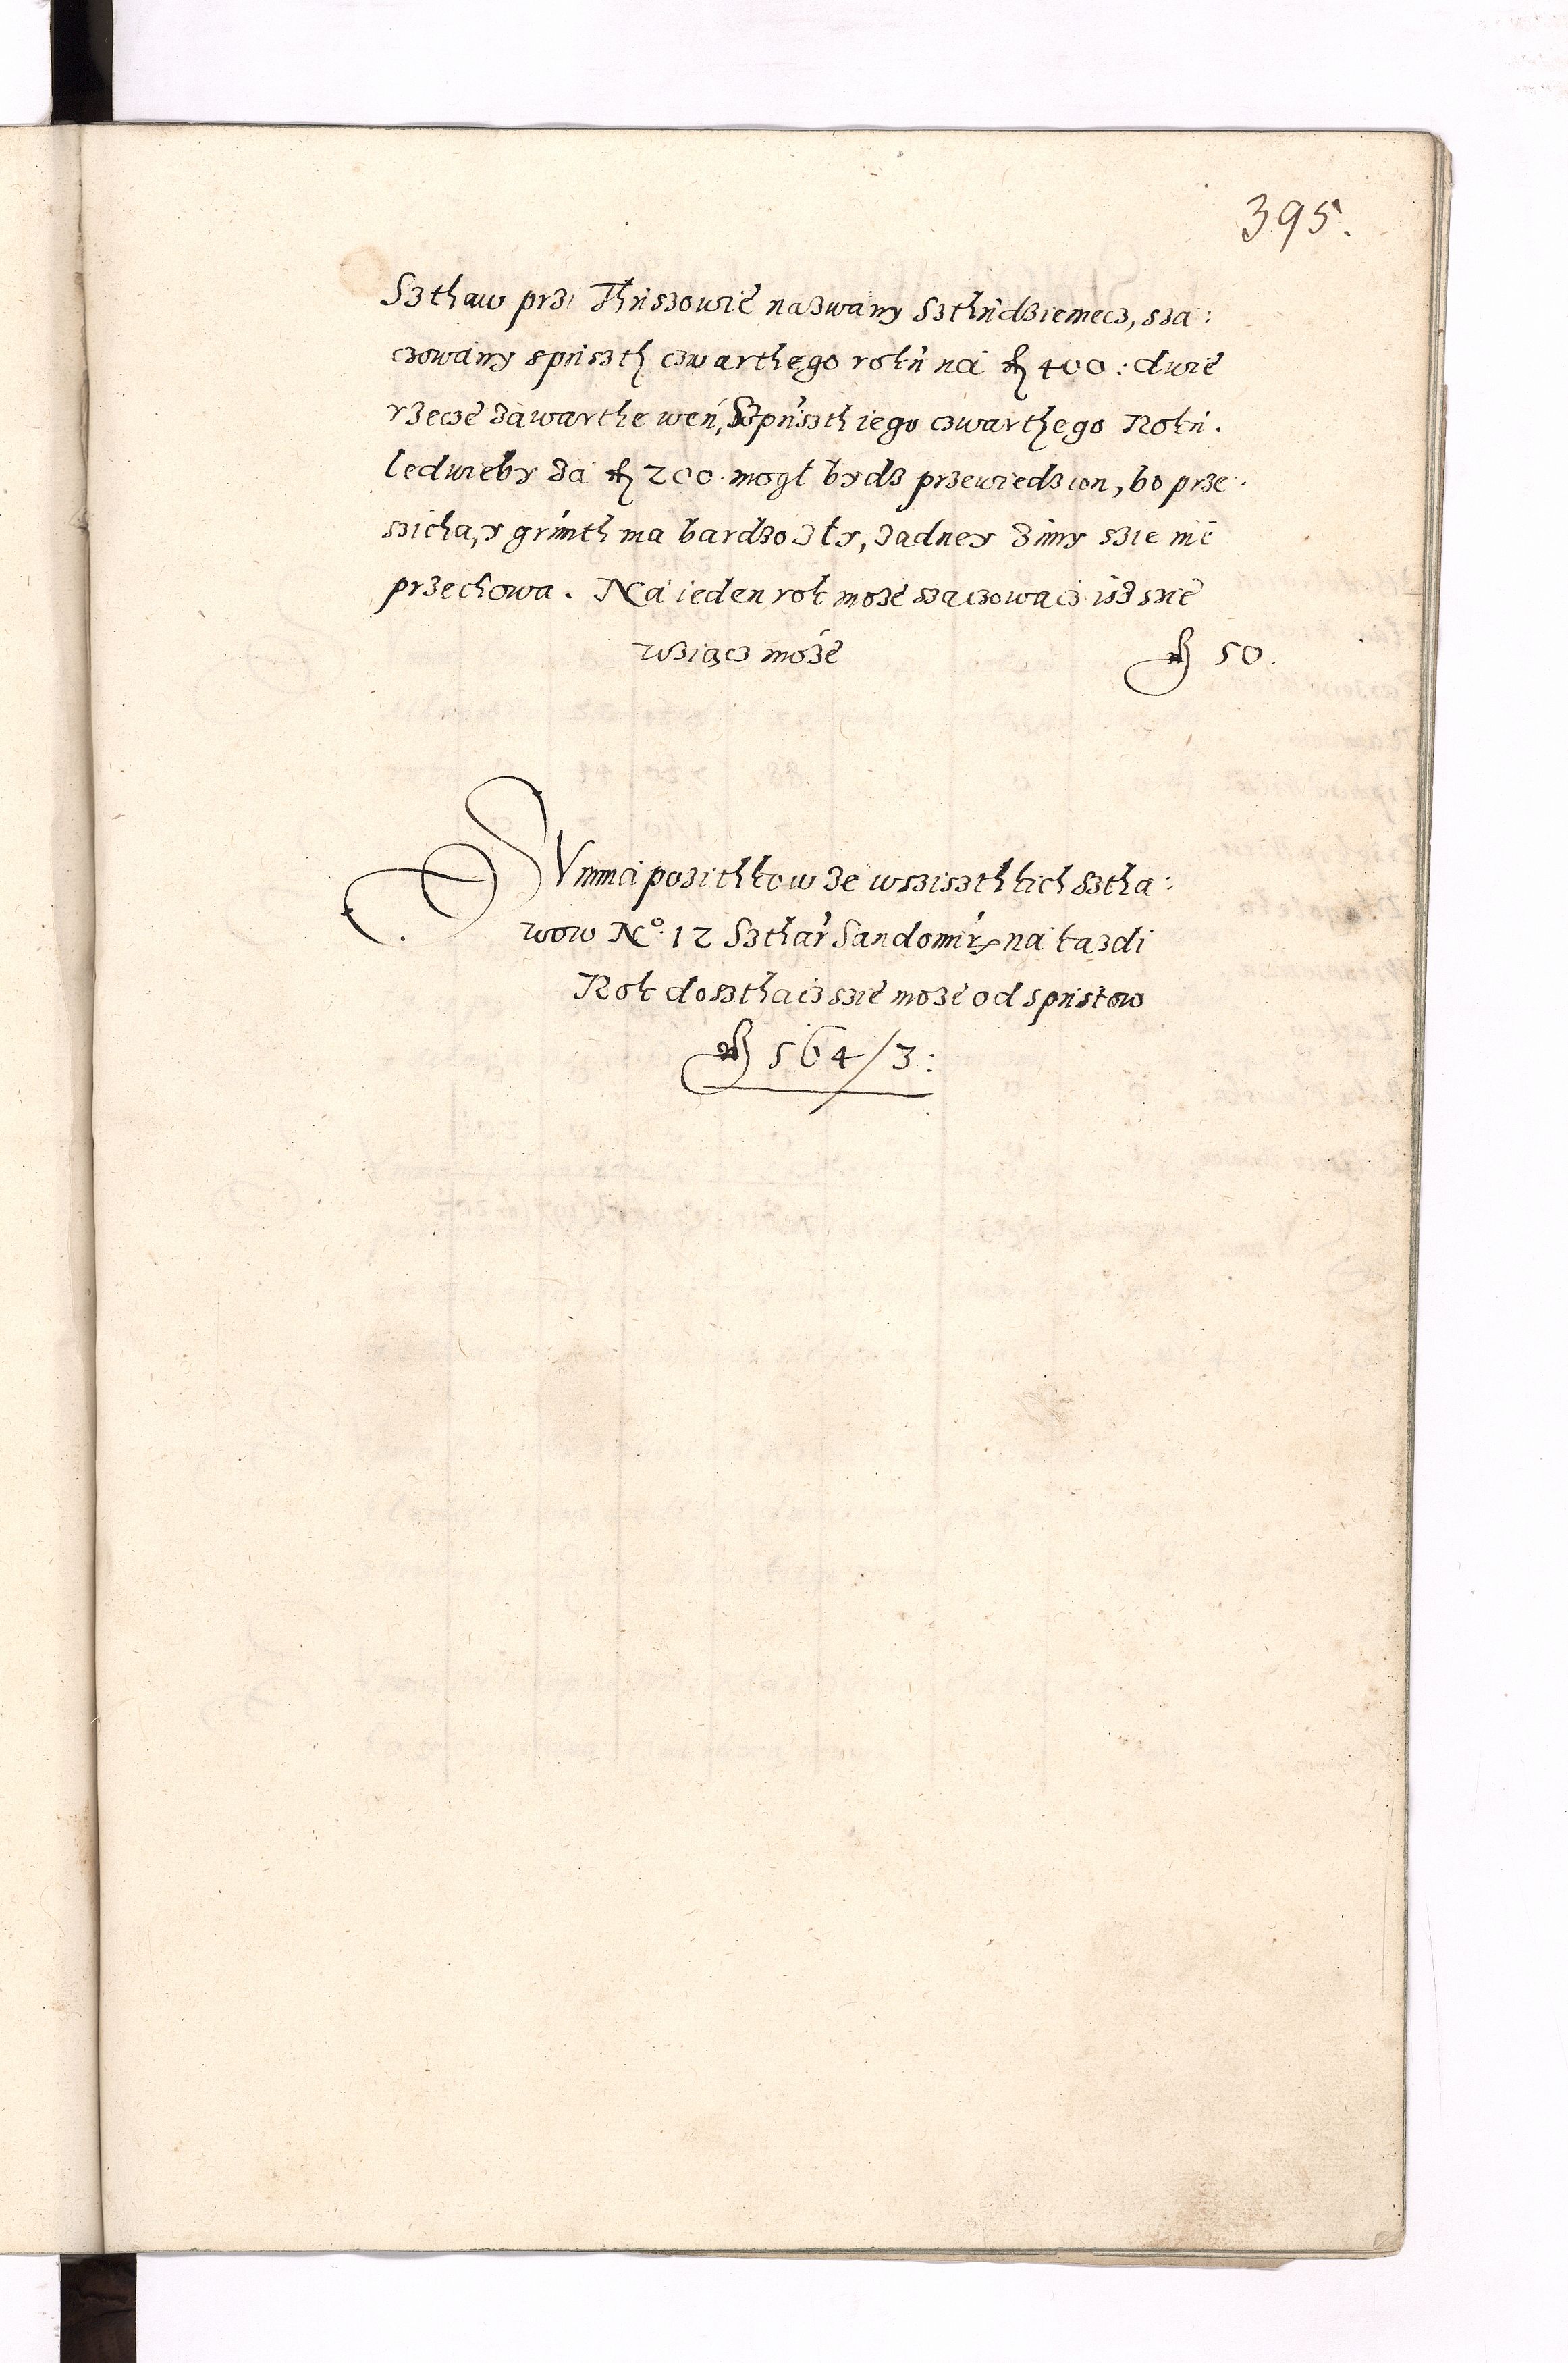 395.
Szthaw przi Thuszowie nazwany Szthudzienecz, sza:
czowany spusth czwarthego roku na fl 400: dwie
rzecze zawarthe weń, Szpuszth iego czwarthego Roku.
ledwieby za fl 200 mogł bydz przewiedzion, bo prze:
szicha, y grunth ma bardzo zły, zadney zimy szie nie
przechowa. Na ieden rok może szaczowacz isz szie
wziącz może fl 50.
SVmma pozithkow ze wsziszthkich sztha:
wow No. 12 Szthar Sandomirz na kazdi
Rok dosthacz szie może od spustow
fl 564/3: